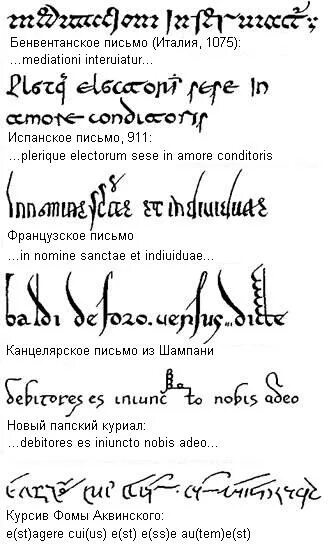 Бенвентанское письмо (Италия, 1075):
...mediationi interuiatur...
Plerq electoris sese in
amore conditoris
Испанское письмо, 911:
...plerique electorum sese in amore conditoris
In nomine scae et indiuiduae
Французское письмо
...in nomine sanctae et indiuiduae...
baldi de foro. uersus..
Канцелярское письмо из Шампани
debitores es iniuncto nobis adeo
Новый папский куриал:
...debitores es iniuncto nobis adeo...
Курсив Фомы Аквинского:
e(st)agere cui(us) e(st) e(ss)e au(tem)e(st)